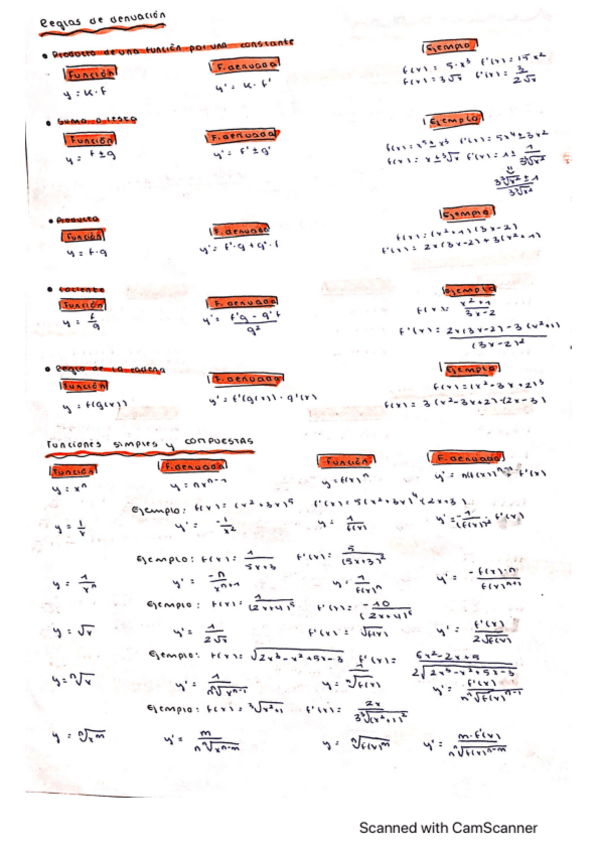 Reglas de derivación
• Producto de una función por una constante
Función F. derivada Ejemplo
y = K · f y' = K · f' f(x) = 5·x³ f'(x) = 15x²
f(x) = 3√x f'(x) = 3/2√x
• Suma o resta
Función F. derivada Ejemplo
y = f ± g y' = f' ± g' f(x) = x⁵ ± x³ f'(x) = 5x⁴ ± 3x²
f(x) = x ± ³√x f'(x) = 1 ± 1/3³√x²
3³√x² ± 1/3³√x²
• Producto
Función F. derivada Ejemplo
y = f · g y' = f'·g + g'·f f(x) = (x²+1)(3x-2)
f'(x) = 2x(3x-2)+3(x²+1)
• Cociente
Función F. derivada Ejemplo
y = f/g y' = f'g - g'f/g² f(x) = x²+1/3x-2
f'(x) = 2x(3x-2)-3(x²+1)/(3x-2)²
• Regla de la cadena
Función F. derivada Ejemplo
y = f(g(x)) y' = f'(g(x)) · g'(x) f(x) = (x²-3x+2)³
f'(x) = 3(x²-3x+2)·(2x-3)
Funciones simples y compuestas
Función F. derivada Función F. derivada
y = xⁿ y = nxⁿ⁻¹ y = f(x)ⁿ y' = n(f(x))ⁿ⁻¹ · f'(x)
Ejemplo: f(x) = (x²+3x)⁵ f'(x) = 5(x²+3x)⁴(2x+3)
y = 1/x y' = -1/x² y = 1/f(x) y' = -1/(f(x))² · f'(x)
Ejemplo: f(x) = 1/5x+3 f'(x) = 5/(5x+3)²
y = 1/xⁿ y' = -n/xⁿ⁺¹ y = 1/f(x)ⁿ y' = -f(x)·n/f(x)ⁿ⁺¹
Ejemplo: f(x) = 1/(2x+4)⁵ f'(x) = -10/(2x+4)⁶
y = √x y' = 1/2√x f(x) = √f(x) y' = f'(x)/2√f(x)
Ejemplo: f(x) = √2x³-x²+5x-3 f'(x) = 6x²-2x+5/2√2x³-x²+5x-3
y = ⁿ√x y' = 1/n ⁿ√xⁿ⁻¹ y = ⁿ√f(x) y' = f'(x)/n ⁿ√f(x)ⁿ⁻¹
Ejemplo: f(x) = ³√x²+1 f'(x) = 2x/3³√(x²+1)²
y = ⁿ√xᵐ y' = m/n ⁿ√xⁿ⁻ᵐ y = ⁿ√f(x)ᵐ y' = m·f'(x)/n ⁿ√f(x)ⁿ⁻ᵐ
Scanned with CamScanner